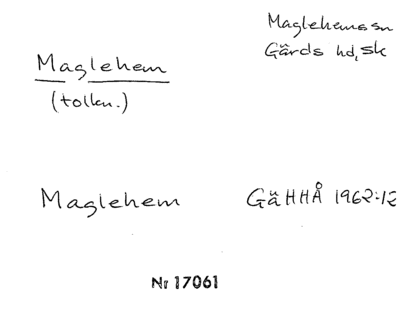 Maglehems sn
Gärds hd, Sk
Maglehem
(tolkn.)
Maglehem GäHHÅ 1962:12
Nr 17061